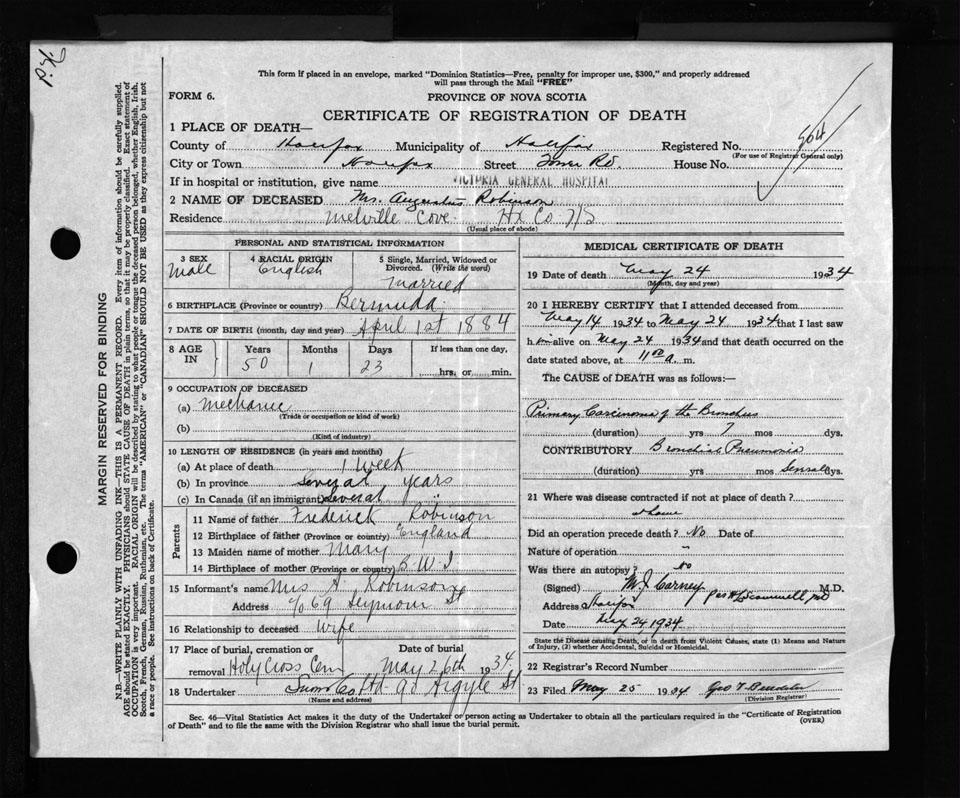 P.H.
This form if placed in an envelope, marked "Dominion Statistics—Free, penalty for improper use, $300," and properly addressed
will pass through the Mail "FREE"
FORM 6.
PROVINCE OF NOVA SCOTIA
CERTIFICATE OF REGISTRATION OF DEATH
1 PLACE OF DEATH—
County of Halifax Municipality of Halifax Registered No. 964
(For use of Registrar General only)
City or Town Halifax Street Tower Rd. House No.
If in hospital or institution, give name VICTORIA GENERAL HOSPITAL
2 NAME OF DECEASED Mr. Augustus Robinson
Residence Melville Cove Hx Co N/S
(Usual place of abode)
PERSONAL AND STATISTICAL INFORMATION
3 SEX 4 RACIAL ORIGIN 5 Single, Married, Widowed or
Divorced. (Write the word)
Male English Married
6 BIRTHPLACE (Province or country) Bermuda
7 DATE OF BIRTH (month, day and year) April 1st 1884
8 AGE IN Years Months Days If less than one day,
50 1 23 hrs. or min.
9 OCCUPATION OF DECEASED
(a) Mechanic
(Trade or occupation or kind of work)
(b)
(Kind of industry)
10 LENGTH OF RESIDENCE (in years and months)
(a) At place of death 1 Week
(b) In province Several years
(c) In Canada (if an immigrant) Several "
Parents
11 Name of father Frederick Robinson
12 Birthplace of father (Province or country) England
13 Maiden name of mother Mary
14 Birthplace of mother (Province or country) B.W.I
15 Informant's name Mrs A Robinson
Address c/o 69 Seymour St
16 Relationship to deceased Wife
17 Place of burial, cremation or Date of burial
removal Holy Cross Cem May 26th 1934.
18 Undertaker Snow Co Ltd 90 Argyle St
(Name and address)
MEDICAL CERTIFICATE OF DEATH
19 Date of death May 24 1934
(Month, day and year)
20 I HEREBY CERTIFY that I attended deceased from
May 14 1934 to May 24 1934 that I last saw
h im alive on May 24 1934 and that death occurred on the
date stated above, at 11 00 a. m.
The CAUSE of DEATH was as follows:—
Primary Carcinoma of the Bronchus
(duration) yrs 7 mos dys.
CONTRIBUTORY Bronchial Pneumonia
(duration) yrs mos Several dys.
21 Where was disease contracted if not at place of death?
at home
Did an operation precede death? No Date of
Nature of operation "
Was there an autopsy? No
(Signed) M J Carney M.D.
per
Address Halifax
Date May 24 1934
State the Disease causing Death, or in death from Violent Causes, state (1) Means and Nature
of Injury, (2) whether Accidental, Suicidal or Homicidal.
22 Registrar's Record Number
23 Filed May 25 1934 Geo T
(Division Registrar)
Sec. 46—Vital Statistics Act makes it the duty of the Undertaker or person acting as Undertaker to obtain all the particulars required in the "Certificate of Registration
of Death" and to file the same with the Division Registrar who shall issue the burial permit.
(OVER)
MARGIN RESERVED FOR BINDING
N.B.—WRITE PLAINLY WITH UNFADING INK—THIS IS A PERMANENT RECORD. Every item of information should be carefully supplied.
AGE should be stated EXACTLY. PHYSICIANS should STATE CAUSE OF DEATH in plain terms, so that it may be properly classified. Exact statement of
OCCUPATION is very important. RACIAL ORIGIN will be described by stating to what people or tongue the deceased person belonged, whether English, Irish,
Scotch, French, German, Russian, Ruthenian, etc. The terms "AMERICAN" or "CANADIAN" SHOULD NOT BE USED as they express citizenship but not
a race or people. See instructions on back of Certificate.